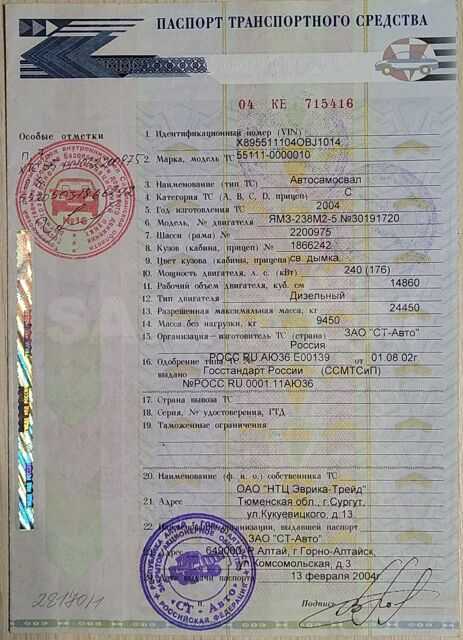 ПАСПОРТ ТРАНСПОРТНОГО СРЕДСТВА
04 КЕ 715416
Особые отметки
1. Идентификационный номер (VIN)
X895511104OBJ1014
2. Марка, модель ТС 55111-0000010
3. Наименование (тип ТС) Автосамосвал
4. Категория ТС (A, B, C, D, прицеп) C
5. Год изготовления ТС 2004
6. Модель, № двигателя ЯМЗ-238М2-5 №30191720
7. Шасси (рама) № 2200975
8. Кузов (кабина, прицеп) № 1866242
9. Цвет кузова (кабины, прицепа) св дымка
10. Мощность двигателя, л. с. (кВт) 240 (176)
11. Рабочий объем двигателя, куб. см 14860
12. Тип двигателя Дизельный
13. Разрешенная максимальная масса, кг 24450
14. Масса без нагрузки, кг 9450
15. Организация—изготовитель ТС (страна) ЗАО "СТ-Авто"
Россия
16. Одобрение типа ТС № РОСС RU АЮ36 Е00139 от 01 08 02г
выдано Госстандарт России (ССМТСиП)
№РОСС RU 0001 11АЮ36
17. Страна вывоза ТС
18. Серия, № ТД, ТПО
19. Таможенные ограничения
20. Наименование (ф. и. о.) собственника ТС
ОАО "НТЦ Эврика-Трейд"
21. Адрес Тюменская обл., г.Сургут,
ул.Кукуевицкого, д.13
22. организации, выдавшей паспорт
ЗАО "СТ-Авто"
Адрес 649000, Р.Алтай, г Горно-Алтайск,
Комсомольская, д.3
Дата выдачи паспорта 13 февраля 2004г
М. П.
Подпись
"СТ-Авто"
РОССИЙСКАЯ ФЕДЕРАЦИЯ